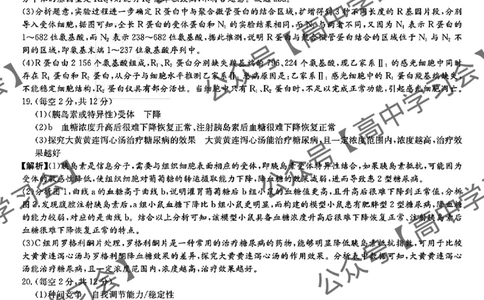 (3)分析观意,实验过程进一步确定R蛋白中与聚合微管蛋白的结合区域,扩增得到3种不同长度的R基因片段,分别
导入受体细胞,据图可知,全长R蛋白的受体蛋白和N₁的实验结果相同,
1~682位氨基酸,而N₂表示R蛋白的238~682位氨基酸,据此推测,说明R蛋白与聚合微管蛋白结合的区域位于N₁与N₂不
同的区域,即氨基末端1~237位氨基酸序列中。
(4)R蛋白由2156个氨基酸组成,R₁、R₂蛋白分别缺失羧基端的796、224个氨基酸,现乙家系Ⅱ₁的感光细胞中同时
存在R₁蛋白和R₂蛋白,从分子与细胞水平推测乙家系Ⅱ₁
不能稳定细胞结构,R₂蛋白仅具有部分活性。当细胞中只有R₂、R₁蛋白时,不足以完成正常功能,引起感光细胞凋亡。
19.(每空2分,共12分)
(1)(胰岛素或特异性)受体 下降
(2)b 血糖浓度升高后很难下降恢复正常、注射胰岛素后血糖很难下降恢复正常
(3)探究大黄黄连泻心汤治疗糖尿病的效果 大黄黄连泻心汤能治疗糖尿病,且一定浓度范围内,浓度越高,治疗效
果越好
【解析】(1)胰岛素是信息分子,需要与组织细胞表面相应的受体,即胰岛素受体特异性结合,如果胰岛素抵抗,可能因为
受体的敏感性降低,使组织细胞对葡萄糖的转运摄取能力下降,降血糖的效果减弱,进而导致患2型糖尿病。
(2)分析图1,曲线a的血糖高于曲线b,说明灌胃葡萄糖后b组小鼠的血糖值更高,且升高后很难下降到正常值,分析
图2,发现腹腔注射胰岛素后,a组小鼠血糖下降比b组小鼠更明显,而构建的模型小鼠患有肥胖型2型糖尿病,降血糖
的能力较弱,对应的是曲线b。结合以上分析可知,该模型小鼠具备血糖浓度升高后很难下降恢复正常,注射胰岛素后
血糖很难下降恢复正常的特点。
(3)C组用罗格列酮片处理,罗格列酮片是一种常用的治疗糖尿病的药物,能够明显降低胰岛素抵抗指数,可用于比较
大黄黄连泻心汤与罗格列酮降血糖效果的差异,探究大黄黄连泻心汤的作用效果。分析表中数据可知,大黄黄连泻心
汤能治疗糖尿病,且一定浓度范围内,浓度越高,治疗效果越好。
20.(每空2分,共12分)
(1)种间竞争 自我调节能力/稳定性
公众号【高中学习会】